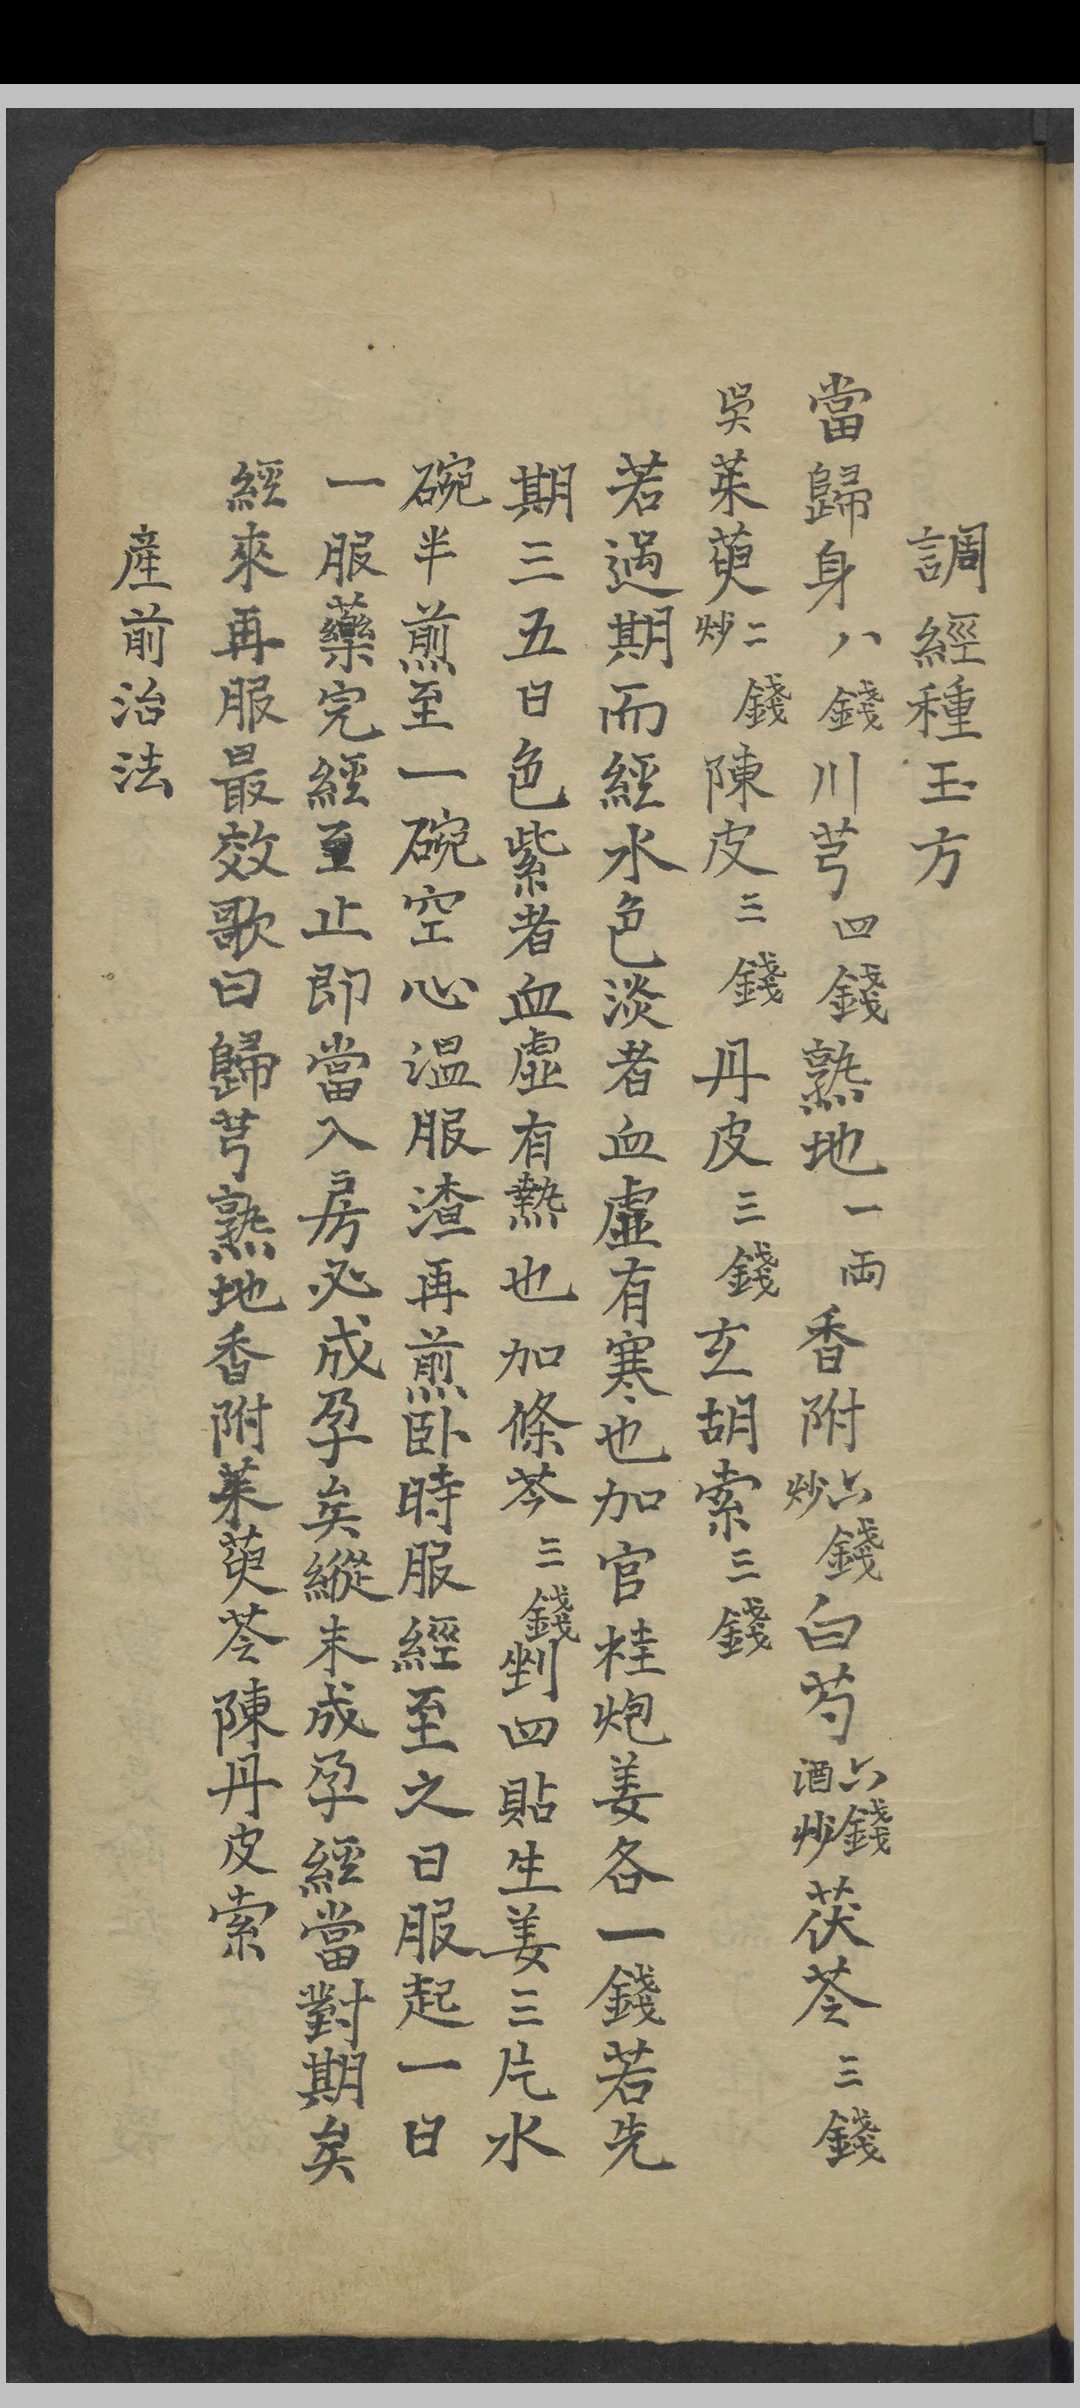 調經種玉方
當歸身八錢川芎四錢熟地一両香附六錢炒白芍六錢酒炒茯苓三錢
吳茱萸二錢炒陳皮三錢丹皮三錢玄胡索三錢
若過期而經水色淡者血虛有寒也加官桂炮姜各一錢若先
期三五日色紫者血虛有熱也加條芩三錢剉四貼生姜三片水
碗半煎至一碗空心溫服渣再煎臥時服經至之日服起一日
一服藥完經至止即當入房必成孕矣縱未成孕經當對期矣
經來再服最效歌曰歸芎熟地香附茱萸苓陳丹皮索
產前治法